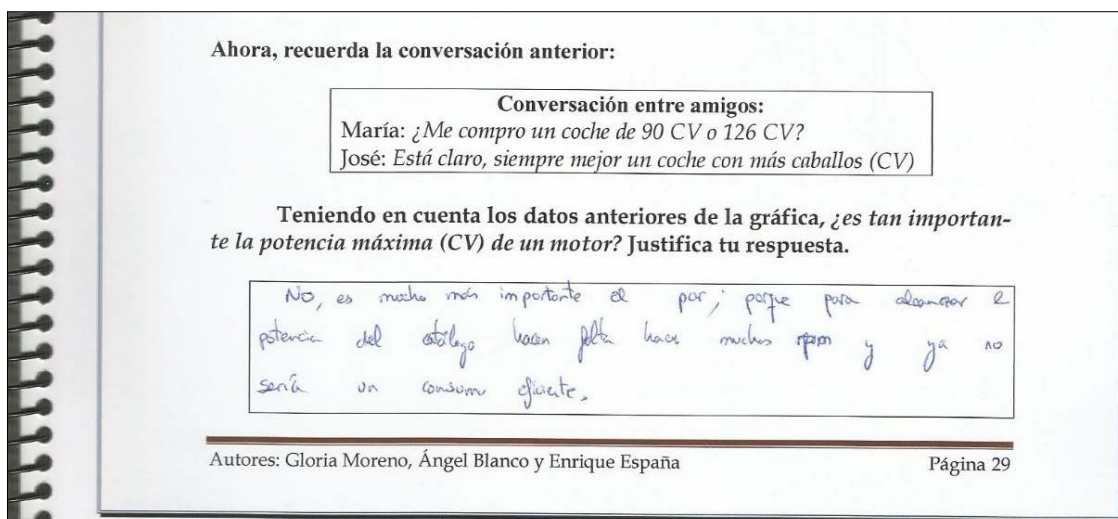 Ahora, recuerda la conversación anterior:
Conversación entre amigos:
María: ¿Me compro un coche de 90 CV o 126 CV?
José: Está claro, siempre mejor un coche con más caballos (CV)
Teniendo en cuenta los datos anteriores de la gráfica, ¿es tan importan-
te la potencia máxima (CV) de un motor? Justifica tu respuesta.
No, es mucho más importante el par, porque para alcanzar
potencia del catálogo hacen falta hacer muchos rpm y ya no
sería un consumo eficiente.
Autores: Gloria Moreno, Ángel Blanco y Enrique España
Página 29